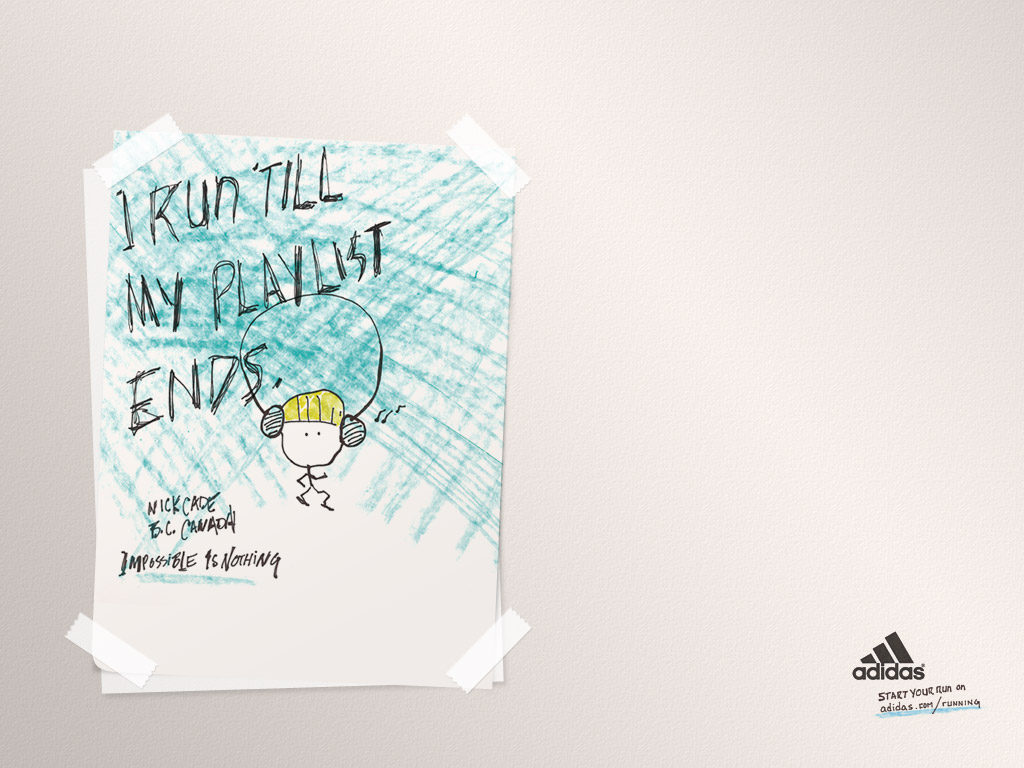 I RUN 'TILL
MY PLAYLIST
ENDS.
NICK CADE
B.C. CANADA
IMPOSSIBLE IS NOTHING
adidas®
START YOUR RUN on
adidas.com/RUNNING